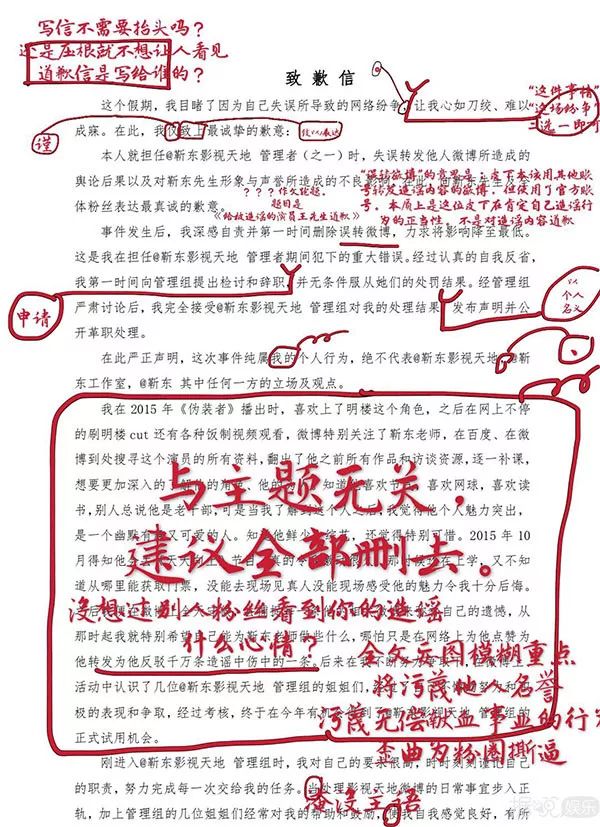 写信不需要抬头吗？
还是压根就不想让人看见
道歉信是写给谁的？
致歉信
这个假期，我目睹了因为自己失误所导致的网络纷争，让我心如刀绞、难以
"这件事情"
"这场纷争"
二选一即可
成寐。在此，我仅致上最诚挚的歉意：
谨
本人就担任@靳东影视天地 管理者（之一）时，失误转发他人微博所造成的
舆论后果以及对靳东先生形象与声誉所造成的不良影响
体粉丝表达最真诚的歉意。
？？？作文跑题。
题目是
《给被造谣的演员王先生道歉》
"误转微博"的意思是：皮下本该用其他账
号转发造谣内容的微博，但使用了官方账
号。本质上是这位皮下在肯定自己造谣行
为的正当性，不是对造谣内容道歉
事件发生后，我深感自责并第一时间删除误转微博，力求将影响降至最低。
这是我在担任@靳东影视天地 管理者期间犯下的重大错误。经过认真的自我反省，
我第一时间向管理组提出检讨和辞职，并无条件服从她们的处罚结果。经管理组
申请
严肃讨论后，我完全接受@靳东影视天地 管理组对我的处理结果
发布声明并公
以
个人
名义
开革职处理。
在此严正声明，这次事件纯属我的个人行为，绝不代表@靳东影视天地
东工作室，@靳东 其中任何一方的立场及观点。
我在 2015 年《伪装者》播出时，喜欢上了明楼这个角色，之后在网上不停
的刷明楼 cut 还有各种饭制视频观看，微博特别关注了靳东老师，在百度、在微
博到处搜寻这个演员的所有资料，翻出了他之前所有作品和访谈资源，逐一补课，
想要更加深入的了解
喜欢网球，喜欢读
书，别人总说他是老干部，可是当我了解
我觉得他个人魅力突出，
是一个幽默有
又可爱的人。
还觉得特别可惜。2015 年 10
与主题无关，
建议全部删去。
月得知他
上学，又不知
道从哪里能获取门票，没能去现场见真人没能现场感受他的魅力令我十分后悔。
没想过别人粉丝看到你的造谣
什么心情？
自己的遗憾，从
那时起我就特别希望自己能为靳东老师做些什么，哪怕只是在网络上为他点赞为
他转发为他反驳千万条造谣中伤中的一条。后来在我不断努力
活动中认识了几位@靳东影视天地 管理组的姐姐们，
极的表现和争取，经过考核，终于在今年有机会
管理组的
正式试用机会。
全文妄图模糊重点
将污蔑他人名誉
污蔑无偿献血事业的行为
歪曲为粉圈撕逼
刚进入@靳东影视天地 管理组时，我对自己的要求很高，时时刻刻谨记自己
的职责，努力完成每一次交给我的任务。当处理影视天地微博的日常事宜步入正
句没主语
轨，加上管理组的几位姐姐们经常对我的帮助和鼓励，使我自我感觉良好，有所
娱乐